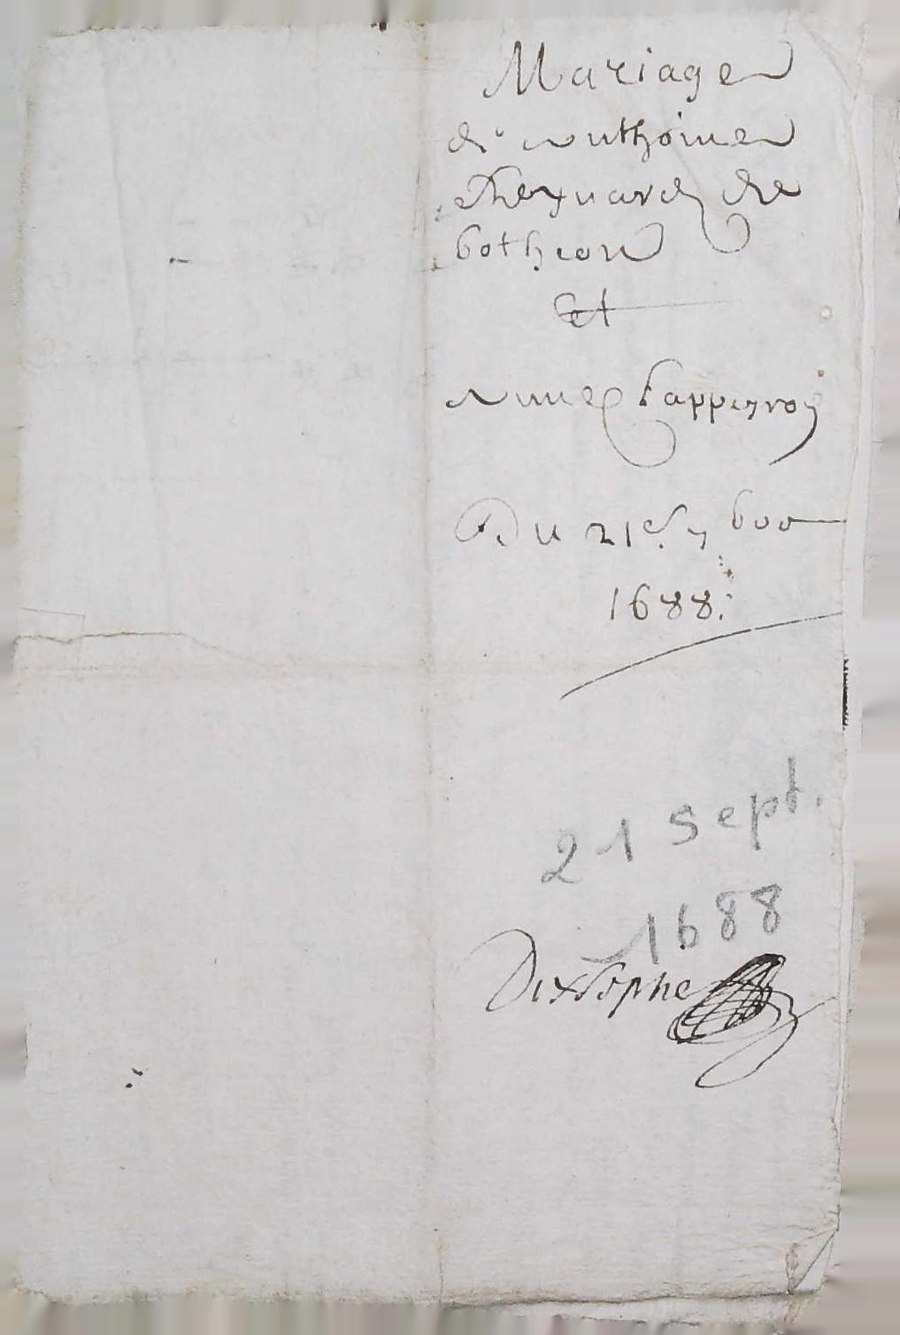 Mariage
de Anthoine
Theynard de
botheon
et
Anne Tappeyroy
Du 21e 7bre
1688
21 Sept.
1688
Dixsophe